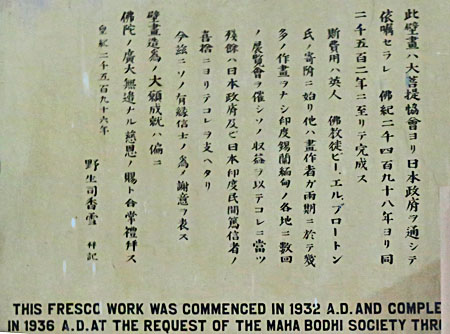 此壁畫ハ大菩提協會ヨリ日本政府ヲ通シテ
依囑セラレ 佛紀二千四百九十八年ヨリ同
二千五百二年ニ至リテ完成ス
斯費用ハ英人 佛教徒ビー、エル、ブロートン
氏ノ寄附ニ始リ他ハ畫作者ガ雨期ニ於テ幾
多ノ作畫ヲナシ印度錫蘭緬甸ノ各地ニ數回
ノ展覽會ヲ催シソノ收益ヲ以テコレニ當ツ
殘餘ハ日本政府及ビ日本印度民間篤信者ノ
喜捨ニヨリテコレヲ支ヘタリ
今茲ニソノ有縁信士ノ為ノ謝意ヲ表ス
壁畫造為ノ大願成就ハ偏ニ
佛陀ノ廣大無邊ナル慈恩ノ賜ト合掌禮拜ス
皇紀二千五百九十六年
野生司香雪 拜記
THIS FRESCO WORK WAS COMMENCED IN 1932 A.D. AND COMPLE
IN 1936 A.D. AT THE REQUEST OF THE MAHA BODHI SOCIETY THR